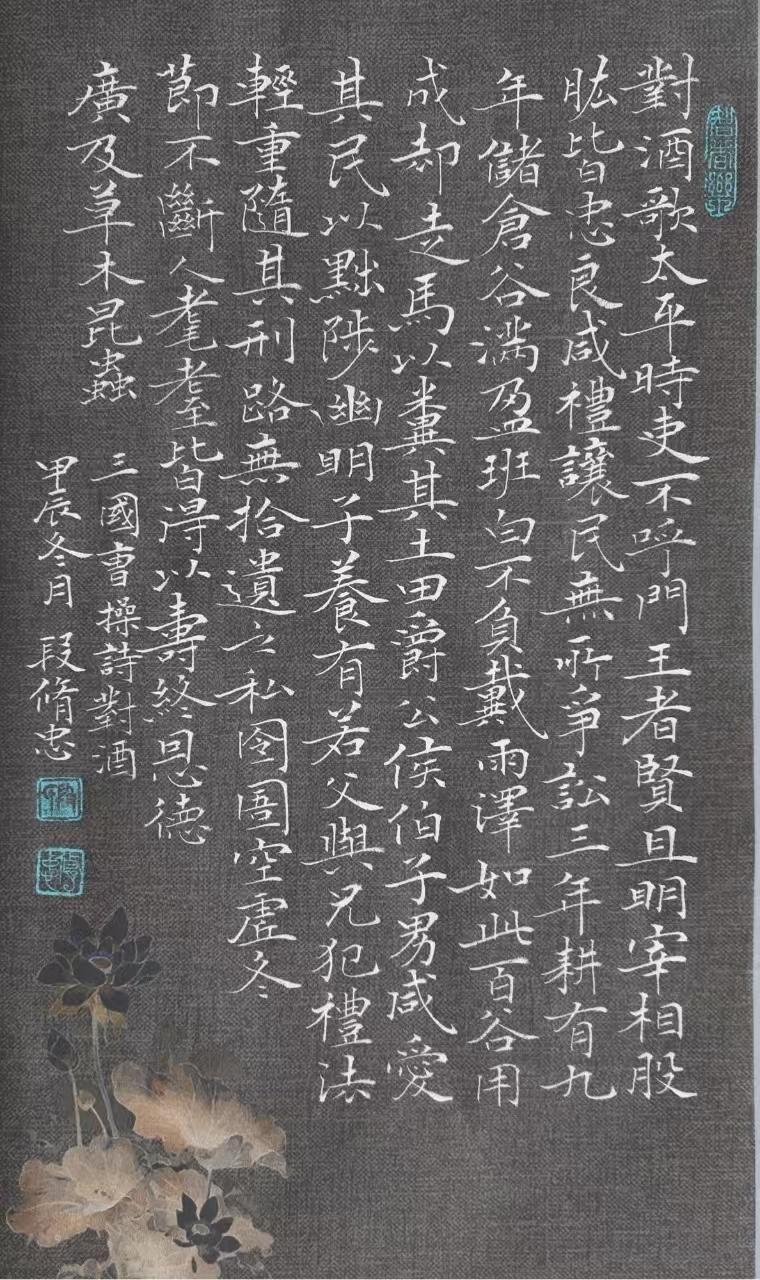 對酒歌太平時吏不呼門王者賢且明宰相股
肱皆忠良咸禮讓民無所爭訟三年耕有九
年儲倉谷滿盈班白不負戴雨澤如此百谷用
成却走馬以糞其土田爵公侯伯子男咸愛
其民以黜陟幽明子養有若父與兄犯禮法
輕重隨其刑路無拾遺之私囹圄空虛冬
節不斷人耄耋皆得以壽終恩德
廣及草木昆蟲
三國曹操詩對酒
甲辰冬月 段脩忠